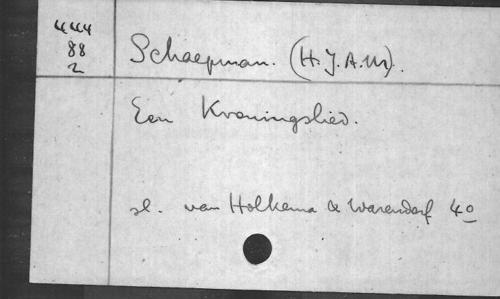 444
88
2
Schaepman. (H.J.A.M).
Een Kroningslied.
sl. van Holkema & Warendorf 4o